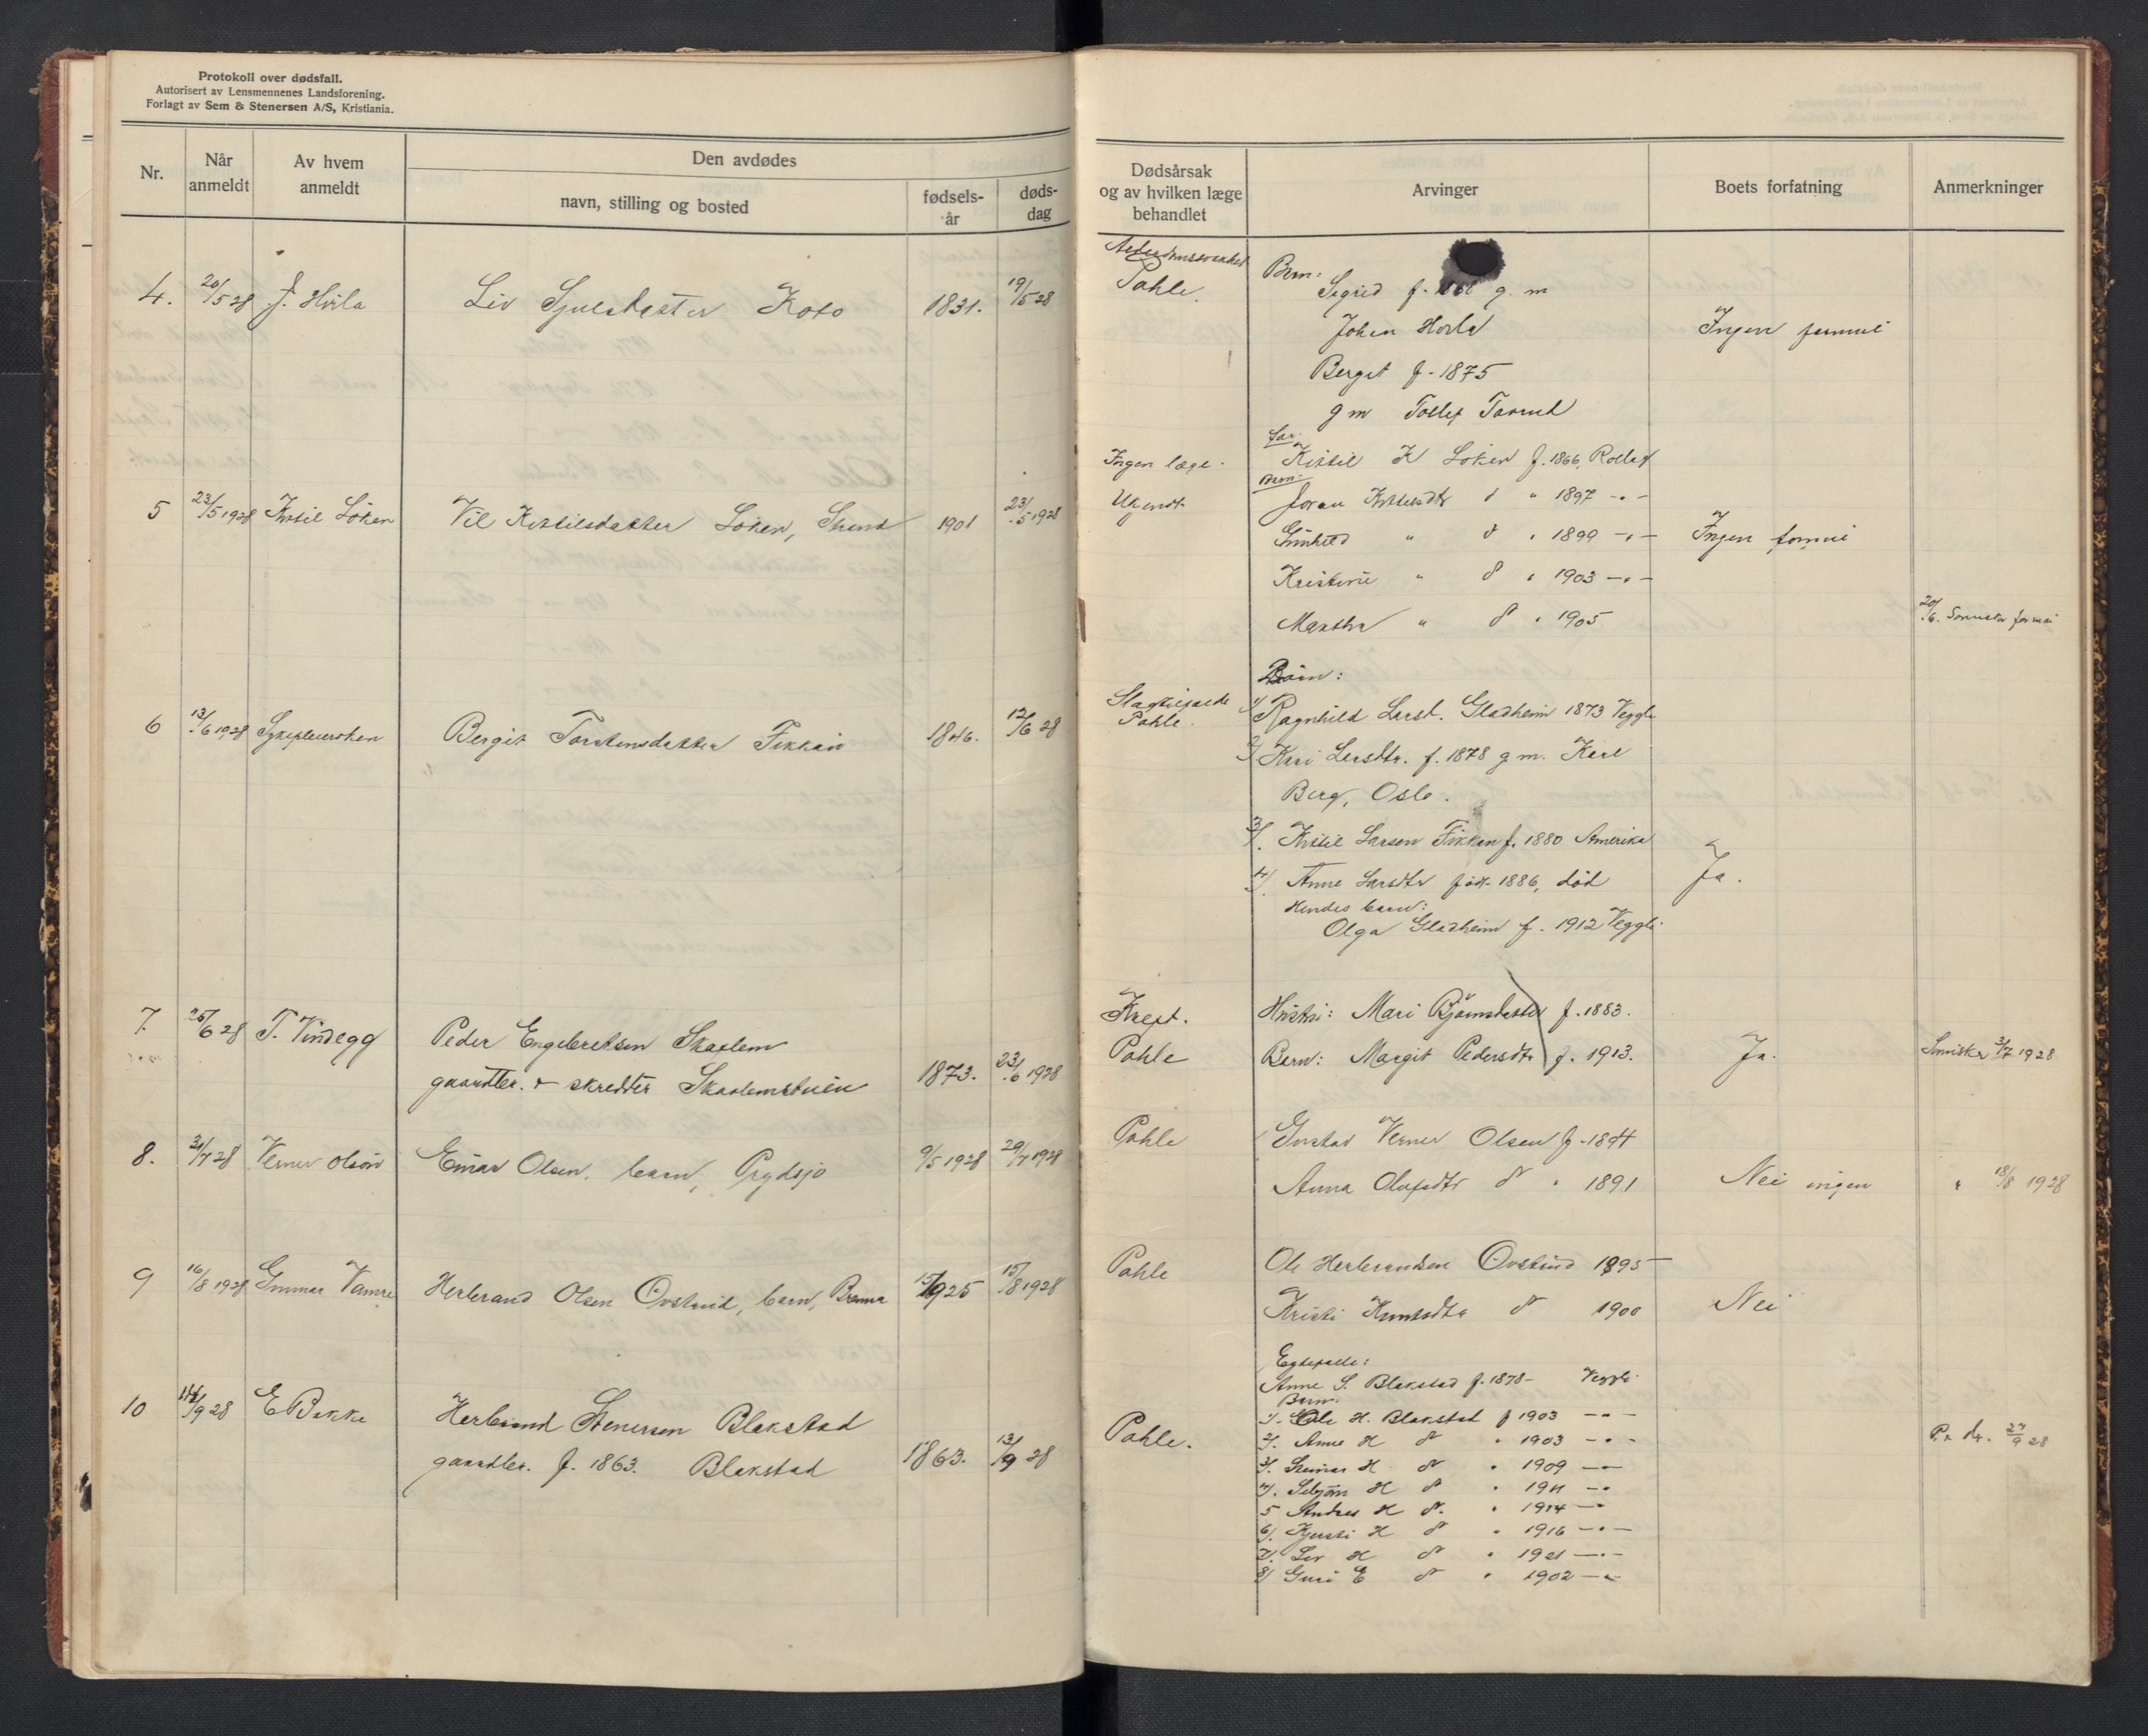 Protokoll over dødsfall.
Autorisert av Lensmennenes Landsforening.
Forlagt av Sem & Stenersen A/S, Kristiania.
Nr.
Når anmeldt
Av hvem anmeldt
Den avdødes
navn, stilling og bosted
fødsels-år
døds-dag
Dødsårsak og av hvilken læge behandlet
Arvinger
Boets forfatning
Anmerkninger
4. 20/5 28 J. Hvila Liv 1831. 19/5 28
Pahle.
Barn:
Sigrid f. g. m
Johan
Berget f. 1875
g m Tollef
Ingen formue
5 23/5 1928 Kittil Löken Vil Kittilsdatter Löken, 1901 23/5 1928
Ingen læge.
Ukjendt
Far:
Kittil K Löken f. 1866, Rollag
Barn:
Joran Kittilsdtr d " 1897 - " -
Gunhild " d " 1899 - " -
Kristine " d " 1903 - " -
Martha " d " 1905
Ingen formue
20/6.
6 13/6 1928 Sykepleiersken Bergit Torstensdatter Fikkan 1846. 12/6 28
Pahle.
Börn:
1/ Ragnhild Larsd. Gladheim 1873 Veggli
2/ Kari Larsdtr. f. 1878 g m. Karl
Berg, Oslo.
3/. Kittil Larsen Fikkan f. 1880 Amerika
4/. Anne Larsdtr född 1886, död
Hendes barn:
Olga Gladheim f. 1912 Veggli.
Ja.
7. 25/6 28 T. Vindegg Peder Engebretsen Skaalem
gaardbr. & skredder Skaalemstuen 1873. 23/6 1928
Kreft.
Pahle
Hustru: Mari Björnsdatter f. 1883.
Barn: Margit Pedersdtr f. 1913.
Ja.
3/7 1928
8. 31/7 28 Verner Olsen Einar Olsen, barn, 9/5 1928 29/7 1928
Pahle
Gustav Verner Olsen f.
Anna Olafsdtr d " 1891
Nei ingen
" 18/8 1928
9 16/8 1928 Gunnar Herbrand Olsen barn, 1925 15/8 1928
Pahle
Ole Herbrandsen 1895
Kristi Knutsdtr d 1900
Nei
10 14/9 28 E Bakke Herbrand Stenersen Blakstad
gaardbr. f. 1863. Blakstad 1863. 13/9 28
Pahle.
Egtefælle:
Anne S. Blakstad f. 1878 - Veggli
Barn:
1. Ole H. Blakstad f 1903 - " -
2/. Anne H d " 1903 - " -
3/. Steinar H d " 1909 - " -
4/. H d " 1911 - "
5 Andres H d. " 1914 - "
6/. Kjersti H d " 1916 - " -
7/. Liv H d " 1921 - " -
8/ Guri E d " 1902 - "
27/9 28